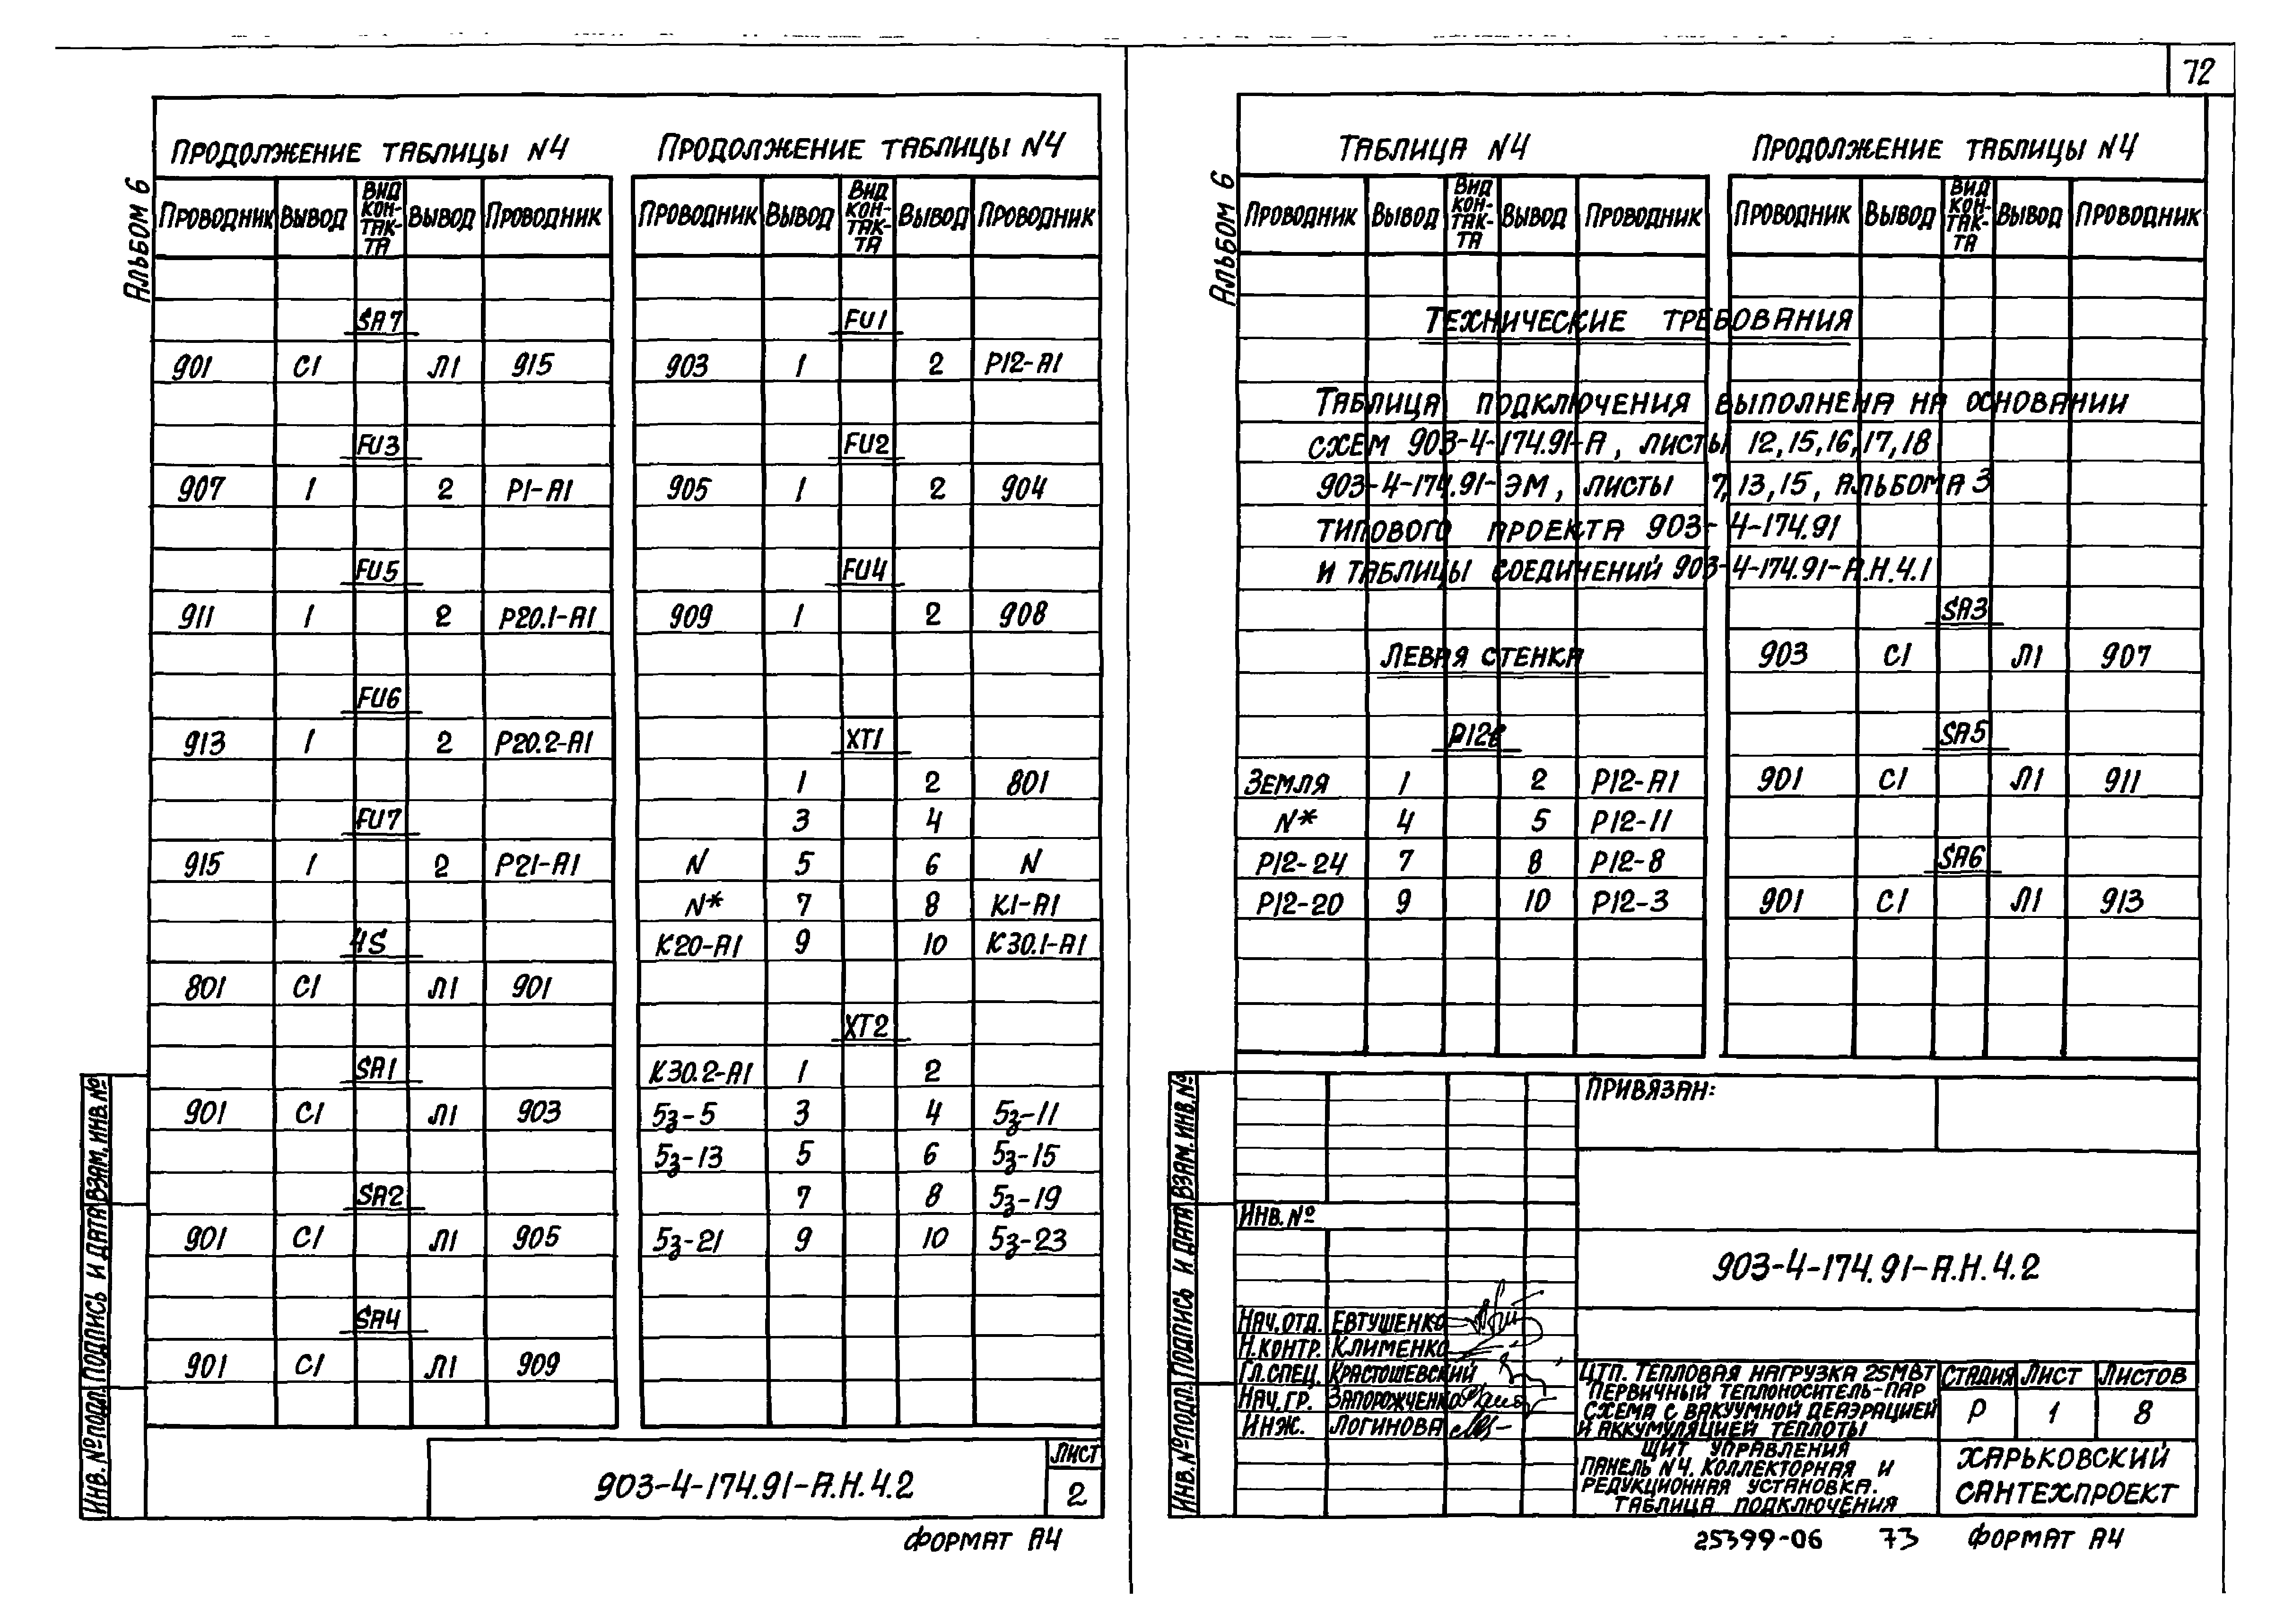 72
АЛЬБОМ 6
ПРОДОЛЖЕНИЕ ТАБЛИЦЫ N4
ПРОВОДНИК ВЫВОД ВИД КОН-ТАК-ТА ВЫВОД ПРОВОДНИК
SA7
901 С1 Л1 915
FU3
907 1 2 Р1-А1
FU5
911 1 2 Р20.1-А1
FU6
913 1 2 Р20.2-А1
FU7
915 1 2 Р21-А1
4S
801 С1 Л1 901
SA1
901 С1 Л1 903
SA2
901 С1 Л1 905
SA4
901 С1 Л1 909
ПРОДОЛЖЕНИЕ ТАБЛИЦЫ N4
ПРОВОДНИК ВЫВОД ВИД КОН-ТАК-ТА ВЫВОД ПРОВОДНИК
FU1
903 1 2 Р12-А1
FU2
905 1 2 904
FU4
909 1 2 908
XT1
1 2 801
3 4
N 5 6 N
N* 7 8 К1-А1
К20-А1 9 10 К30.1-А1
XT2
К30.2-А1 1 2
5з-5 3 4 5з-11
5з-13 5 6 5з-15
7 8 5з-19
5з-21 9 10 5з-23
ИНВ.№ПОДЛ. ПОДПИСЬ И ДАТА ВЗАМ.ИНВ.№
903-4-174.91-А.Н.4.2
ЛИСТ
2
ФОРМАТ А4
АЛЬБОМ 6
ТАБЛИЦА N4
ПРОДОЛЖЕНИЕ ТАБЛИЦЫ N4
ПРОВОДНИК ВЫВОД ВИД КОН-ТАК-ТА ВЫВОД ПРОВОДНИК
ПРОВОДНИК ВЫВОД ВИД КОН-ТАК-ТА ВЫВОД ПРОВОДНИК
ТЕХНИЧЕСКИЕ ТРЕБОВАНИЯ
ТАБЛИЦА ПОДКЛЮЧЕНИЯ ВЫПОЛНЕНА НА ОСНОВАНИИ
СХЕМ 903-4-174.91-А, ЛИСТЫ 12,15,16,17,18
903-4-174.91-ЭМ, ЛИСТЫ 7,13,15, АЛЬБОМА 3
ТИПОВОГО ПРОЕКТА 903-4-174.91
И ТАБЛИЦЫ СОЕДИНЕНИЙ 903-4-174.91-А.Н.4.1
ЛЕВАЯ СТЕНКА
Р12
ЗЕМЛЯ 1 2 Р12-А1
N* 4 5 Р12-11
Р12-24 7 8 Р12-8
Р12-20 9 10 Р12-3
SA3
903 С1 Л1 907
SA5
901 С1 Л1 911
SA6
901 С1 Л1 913
ИНВ.№ПОДЛ. ПОДПИСЬ И ДАТА ВЗАМ.ИНВ.№
ПРИВЯЗАН:
ИНВ.№
903-4-174.91-А.Н.4.2
НАЧ.ОТД. ЕВТУШЕНКО
Н.КОНТР. КЛИМЕНКО
ГЛ.СПЕЦ. КРАСТОШЕВСКИЙ
НАЧ.ГР. ЗАПОРОЖЧЕНКО
ИНЖ. ЛОГИНОВА
ЦТП. ТЕПЛОВАЯ НАГРУЗКА 25МВТ
ПЕРВИЧНЫЙ ТЕПЛОНОСИТЕЛЬ-ПАР
СХЕМА С ВАКУУМНОЙ ДЕАЭРАЦИЕЙ
И АККУМУЛЯЦИЕЙ ТЕПЛОТЫ
СТАДИЯ ЛИСТ ЛИСТОВ
Р 1 8
ЩИТ УПРАВЛЕНИЯ
ПАНЕЛЬ N4. КОЛЛЕКТОРНАЯ И
РЕДУКЦИОННАЯ УСТАНОВКА.
ТАБЛИЦА ПОДКЛЮЧЕНИЯ
ХАРЬКОВСКИЙ
САНТЕХПРОЕКТ
25399-06 73 ФОРМАТ А4